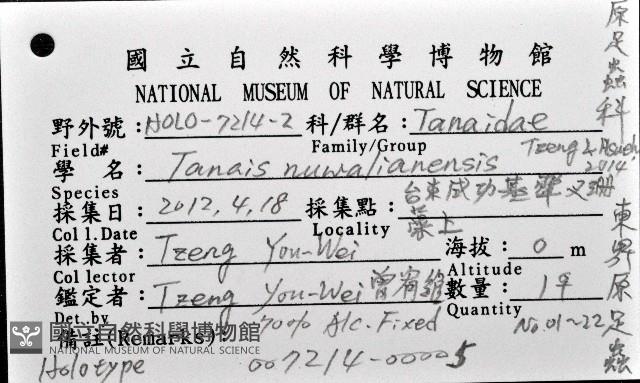 國立自然科學博物館
NATIONAL MUSEUM OF NATURAL SCIENCE
野外號: HOLO-7214-2 科/群名: Tanaidae
Field# Family/Group
Tzeng & Hsueh 2014
學 名: Tanais nuwalianensis
Species
台東成功基翬 珊
採集日: 2012.4.18 採集點: 藻上
Coll.Date Locality
採集者: Tzeng You-Wei 海拔: 0 m
Collector Altitude
鑑定者: Tzeng You-Wei 曾宥維 數量: 1♀
Det.by Quantity
備註(Remarks) 70% Alc. Fixed No.01~22
Holotype 007214-00005
原足蟲科
東界原足蟲
國立自然科學博物館
NATIONAL MUSEUM OF NATURAL SCIENCE